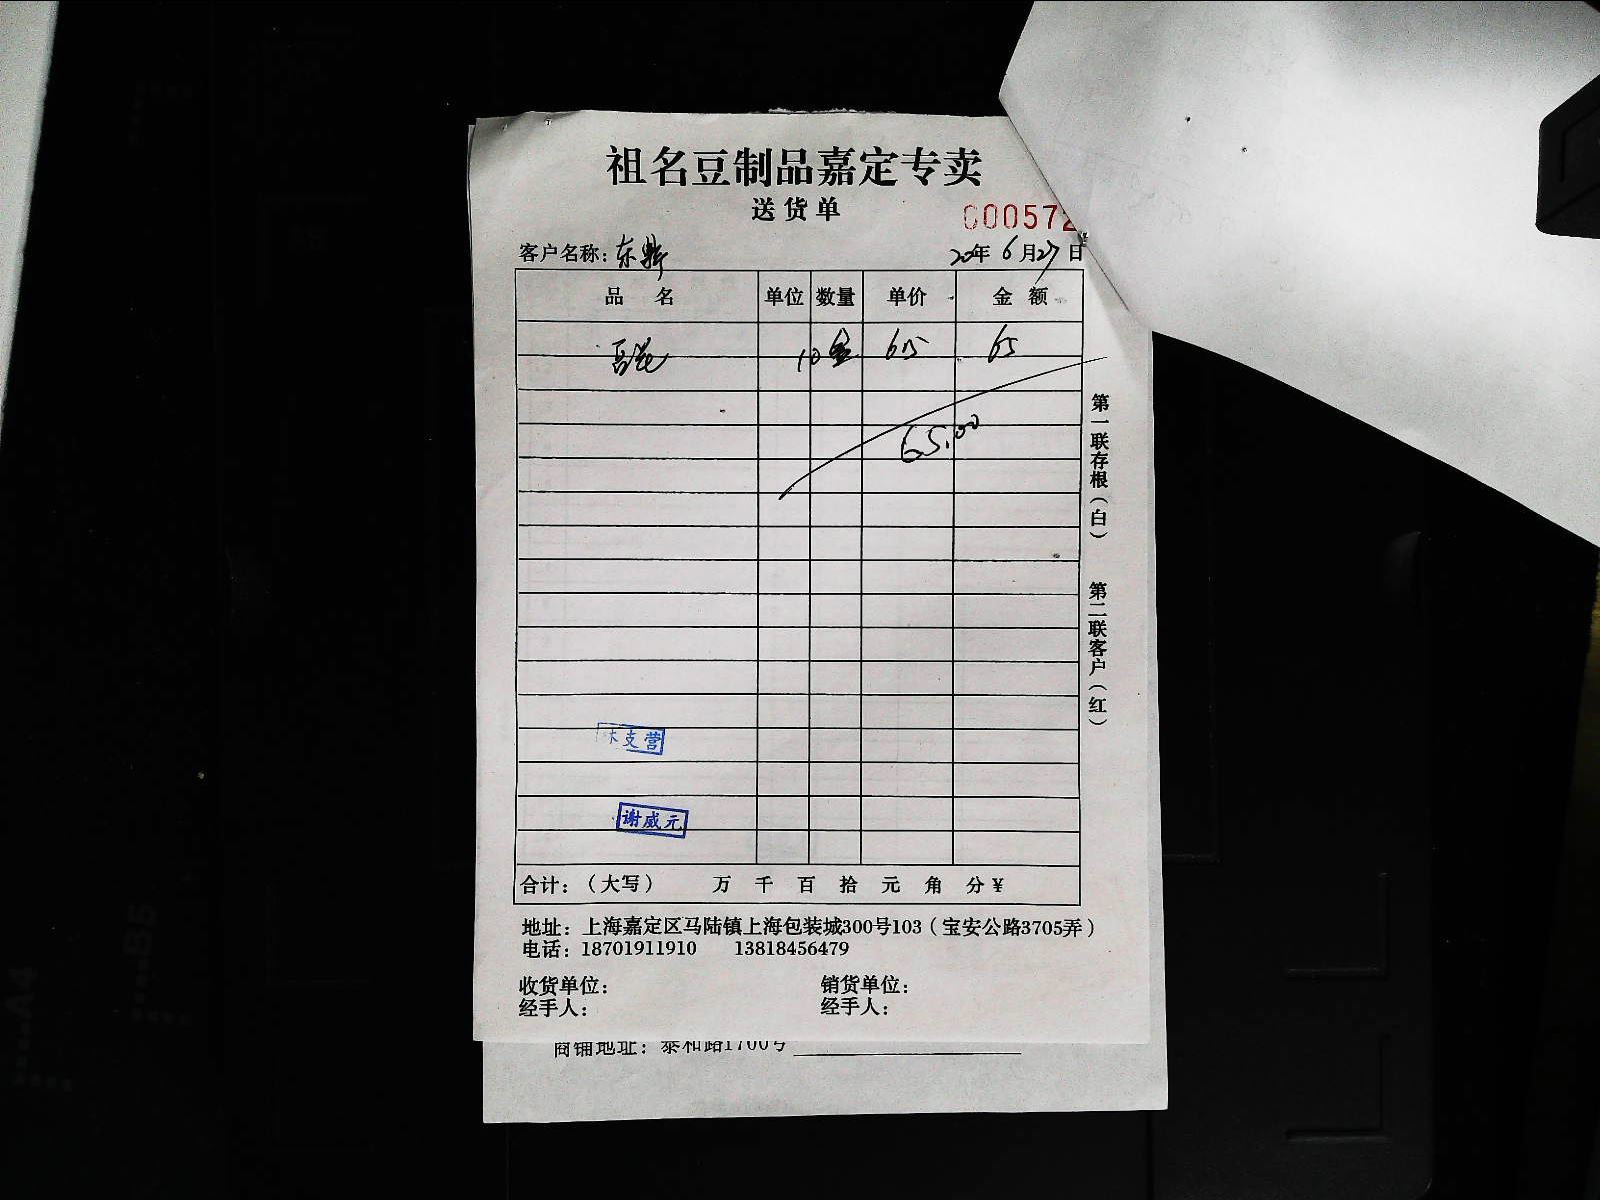 祖名豆制品嘉定专卖
送货单
000572
客户名称：东鼎 20年6月27日
品名 单位 数量 单价 金额
豆花 10盒 6.5 65
65.00
第一联存根（白） 第二联客户（红）
支营
谢威元
合计：（大写） 万 千 百 拾 元 角 分 ¥
地址：上海嘉定区马陆镇上海包装城300号103（宝安公路3705弄）
电话：18701911910 13818456479
收货单位： 销货单位：
经手人： 经手人：
商铺地址：泰和路1700号